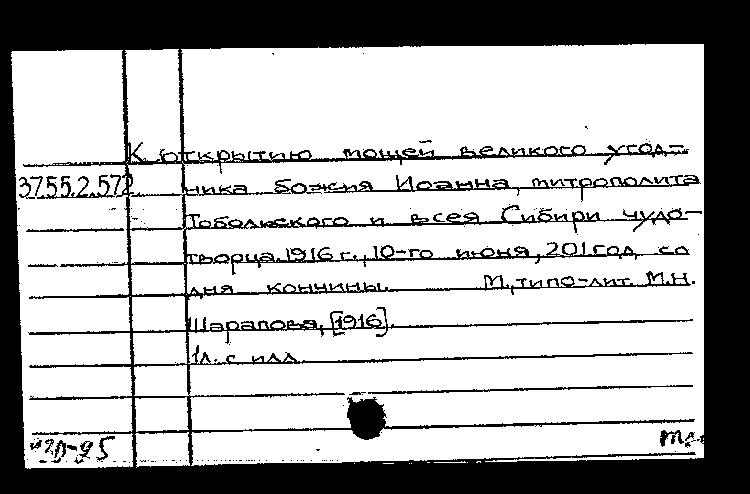 К открытию мощей великого угод-
37.55.2.572. ника божия Иоанна, митрополита
Тобольского и всея Сибири чудо-
творца. 1916 г., 10-го июня, 201 год со
дня кончины. М., типо-лит. М.Н.
Шарапова, [1916].
1л. с илл.